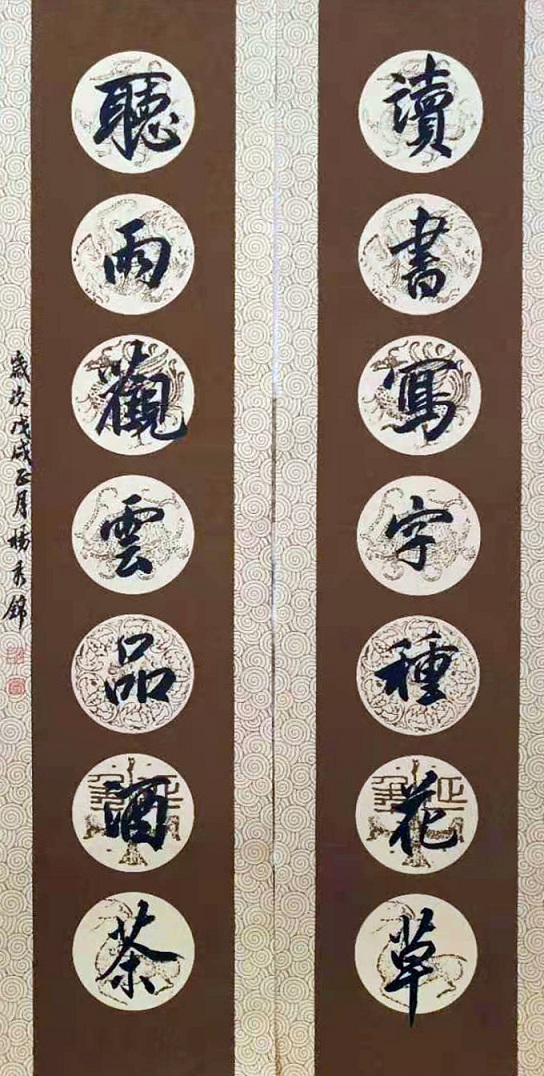 讀書寫字種花草
聽雨觀雲品酒茶
歲次戊戌正月楊秀錦